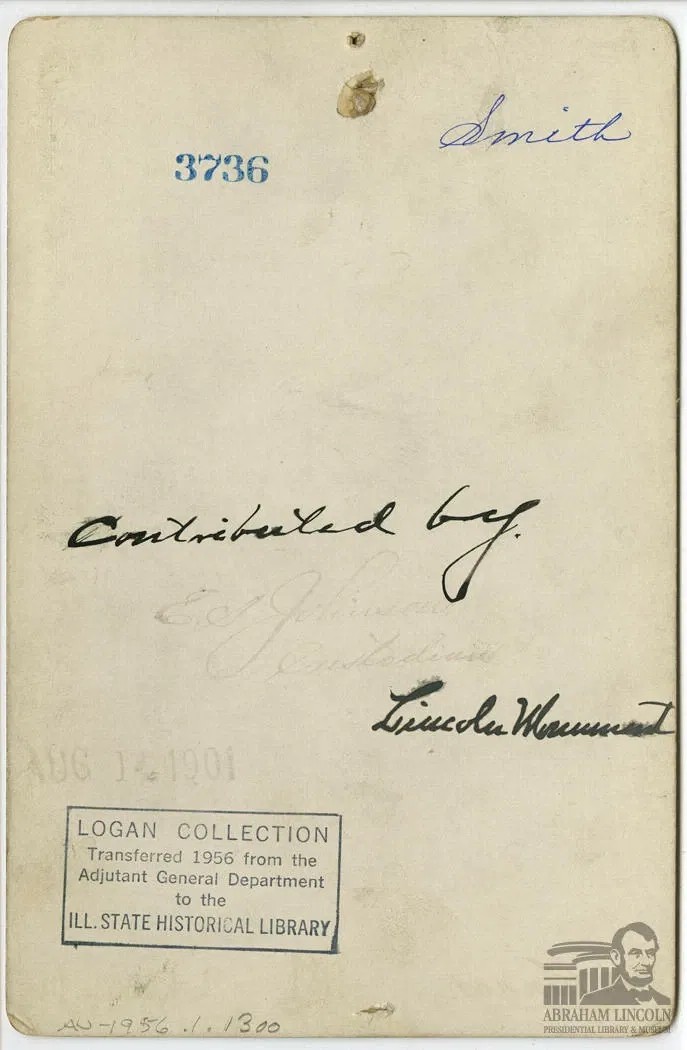 Smith
3736
Contributed by.
E. S. Johnson
Custodian
Lincoln Monument
1901
LOGAN COLLECTION
Transferred 1956 from the
Adjutant General Department
to the
ILL. STATE HISTORICAL LIBRARY
AV-1956.1.1300
ABRAHAM LINCOLN
PRESIDENTIAL LIBRARY & MUSEUM